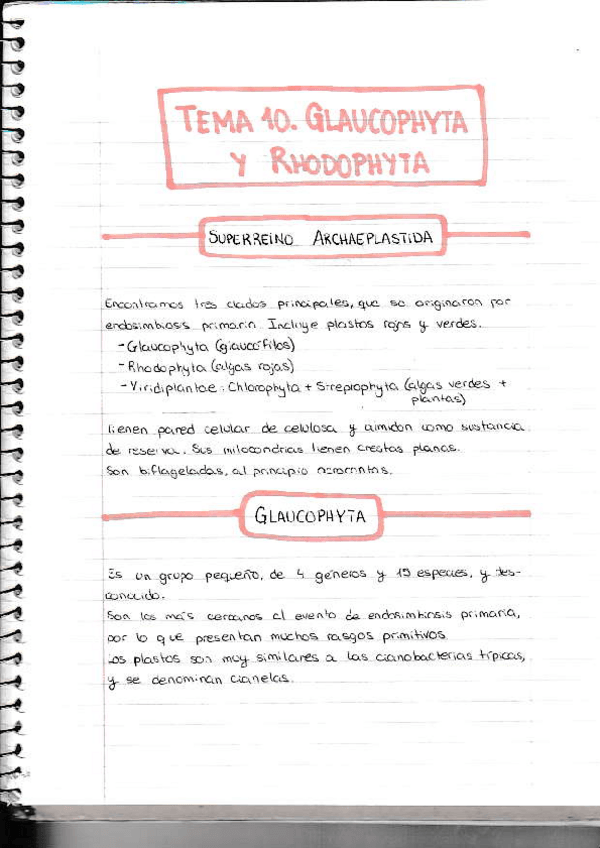 TEMA 10. GLAUCOPHYTA
Y RHODOPHYTA
SUPERREINO ARCHAEPLASTIDA
Encontramos tres clados principales, que se originaron por
endosimbiosis primaria. Incluye plastos rojos y verdes.
- Glaucophyta (glaucófilos)
- Rhodophyta (algas rojas)
- Viridiplantae: Chlorophyta + Streptophyta (algas verdes +
plantas)
Tienen pared celular de celulosa y almidón como sustancia
de reserva. Sus mitocondrias tienen crestas planas.
Son biflageladas, al principio acrocontas.
GLAUCOPHYTA
Es un grupo pequeño, de 4 géneros y 15 especies, y des-
conocido.
Son los más cercanos al evento de endosimbiosis primaria,
por lo que presentan muchos rasgos primitivos.
Los plastos son muy similares a las cianobacterias típicas,
y se denominan cianelas.